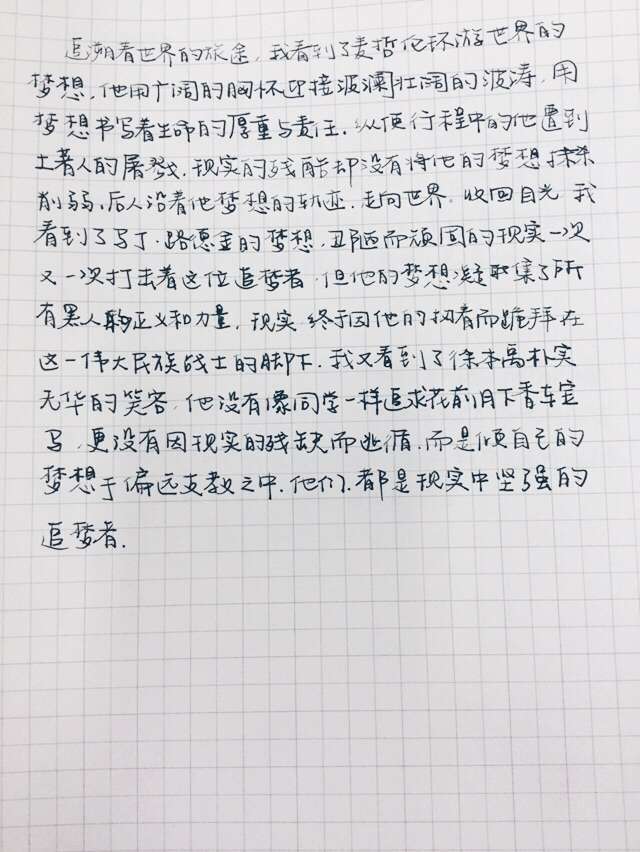 追溯着世界的旅途，我看到了麦哲伦环游世界的
梦想，他用广阔的胸怀迎接波澜壮阔的波涛，用
梦想书写着生命的厚重与责任，纵使行程中的他遭到
土著人的屠戮，现实的残酷却没有将他的梦想抹杀
削弱，后人沿着他梦想的轨迹，走向世界。收回目光，我
看到了马丁·路德金的梦想，丑陋而顽固的现实一次
又一次打击着这位追梦者，但他的梦想凝聚集了所
有黑人的正义和力量，现实，终于因他的执着而跪拜在
这一伟大民族战士的脚下，我又看到了徐本禹朴实
无华的笑容，他没有像同学一样追求花前月下香车宝
马，更没有因现实的残缺而逃循，而是倾自己的
梦想于偏远支教之中，他们，都是现实中坚强的
追梦者．